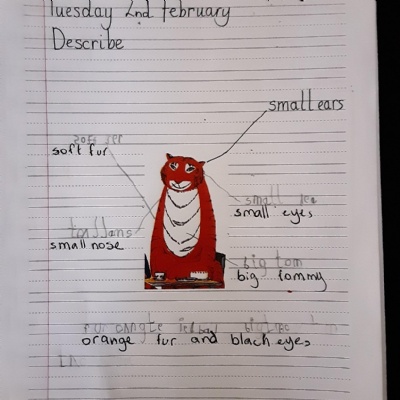 Tuesday 2nd February
Describe
small ears
soft fur
small eyes
small nose
big tommy
orange fur and black eyes